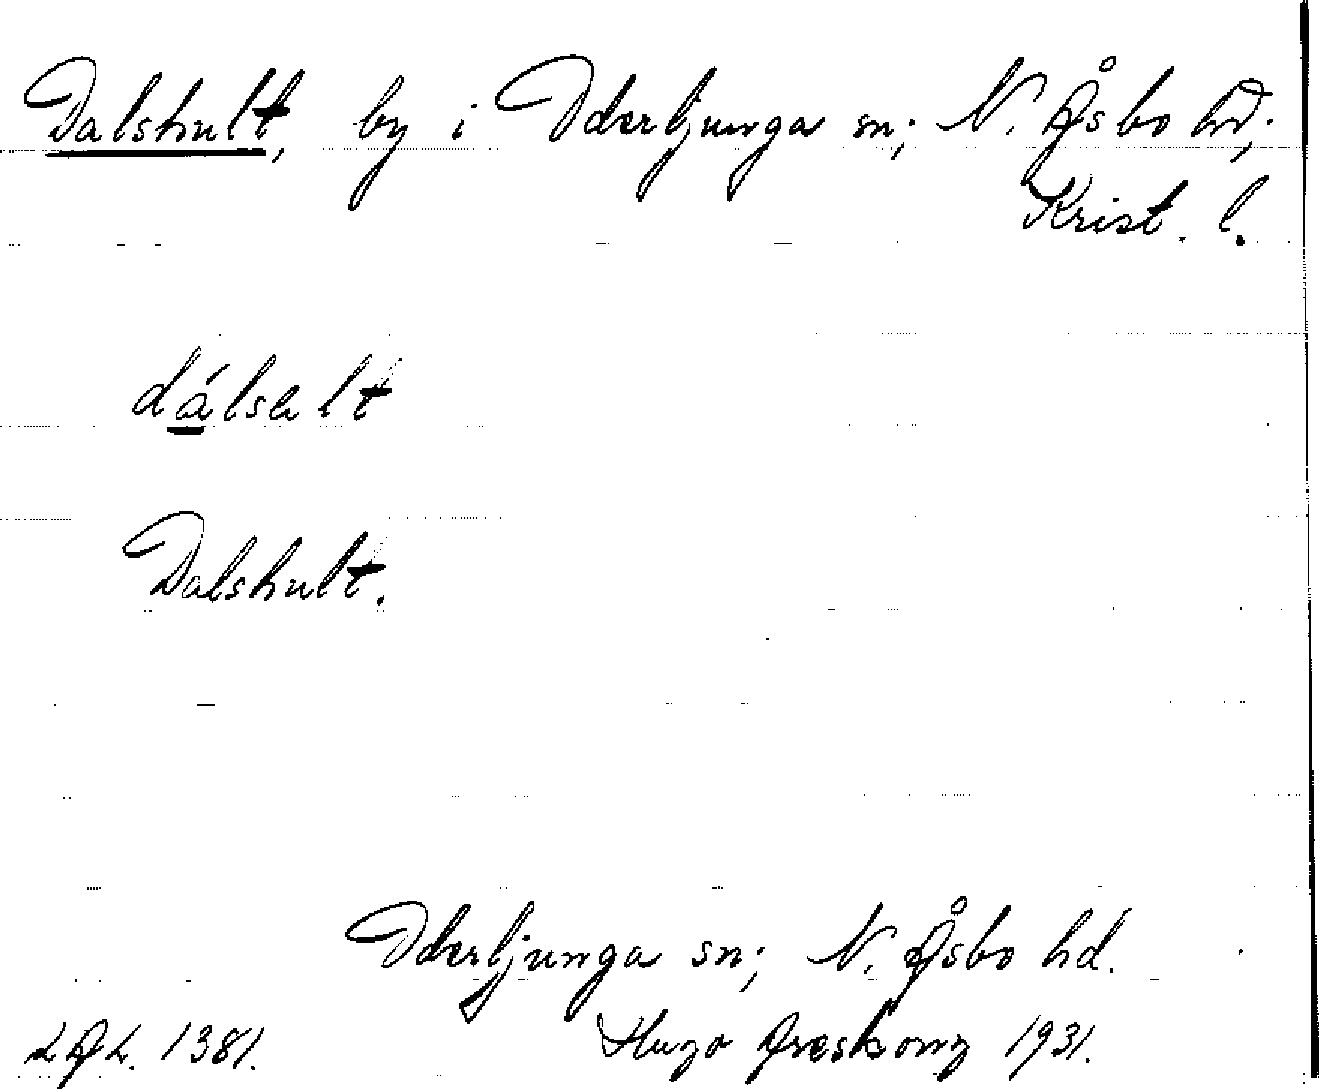 Dalshult, by i Oderljunga sn; N. Åsbo hd;
Krist. l.
dálsalt
Dalshult.
Oderljunga sn; N. Åsbo hd.
LAL. 1381. Hugo Areskoug 1931.